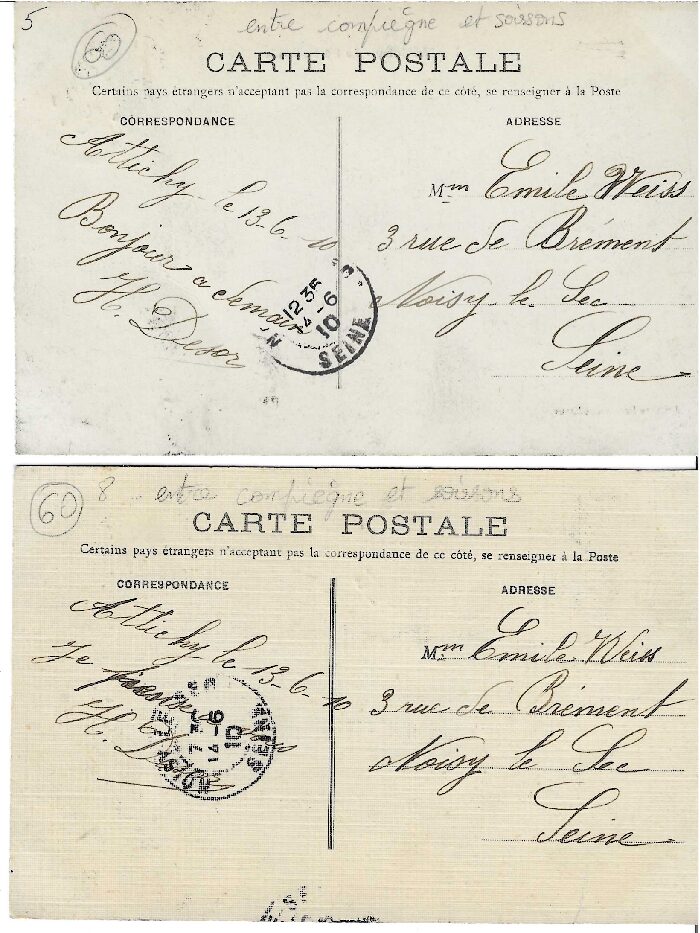 5
60
entre compiègne et soissons
CARTE POSTALE
Certains pays étrangers n'acceptant pas la correspondance de ce côté, se renseigner à la Poste
CORRESPONDANCE
Attichy le 13-6-10
Bonjour a demain
H. Desor
ADRESSE
Mm Emile Weiss
3 rue de Brément
Noisy le Sec
Seine
12 35
14-6
10
SEINE
60
8 entre compiègne et soissons
CARTE POSTALE
Certains pays étrangers n'acceptant pas la correspondance de ce côté, se renseigner à la Poste
CORRESPONDANCE
Attichy le 13-6-10
Je
H.
ADRESSE
Mm Emile Weiss
3 rue de Brément
Noisy le Sec
Seine
NOISY LE
14-6
10
SEINE